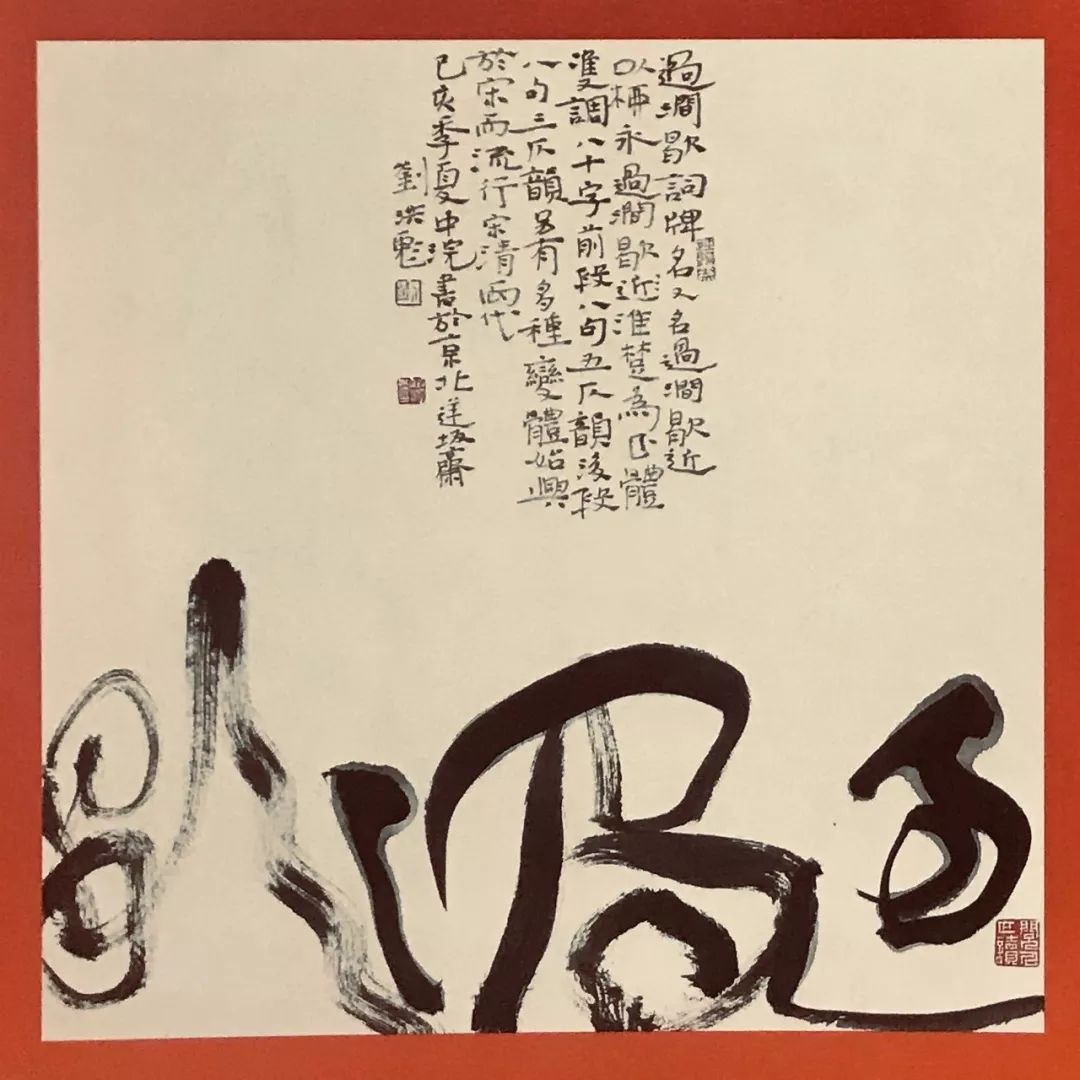 過澗歇詞牌名又名過澗歇近
以柳永過澗歇近淮楚為正體
雙調八十字前段八句五仄韻後段
八句三仄韻另有多種變體始興
於宋而流行宋清兩代
己亥季夏中浣書於京北逆坂齋
劉洪彪
過澗歇